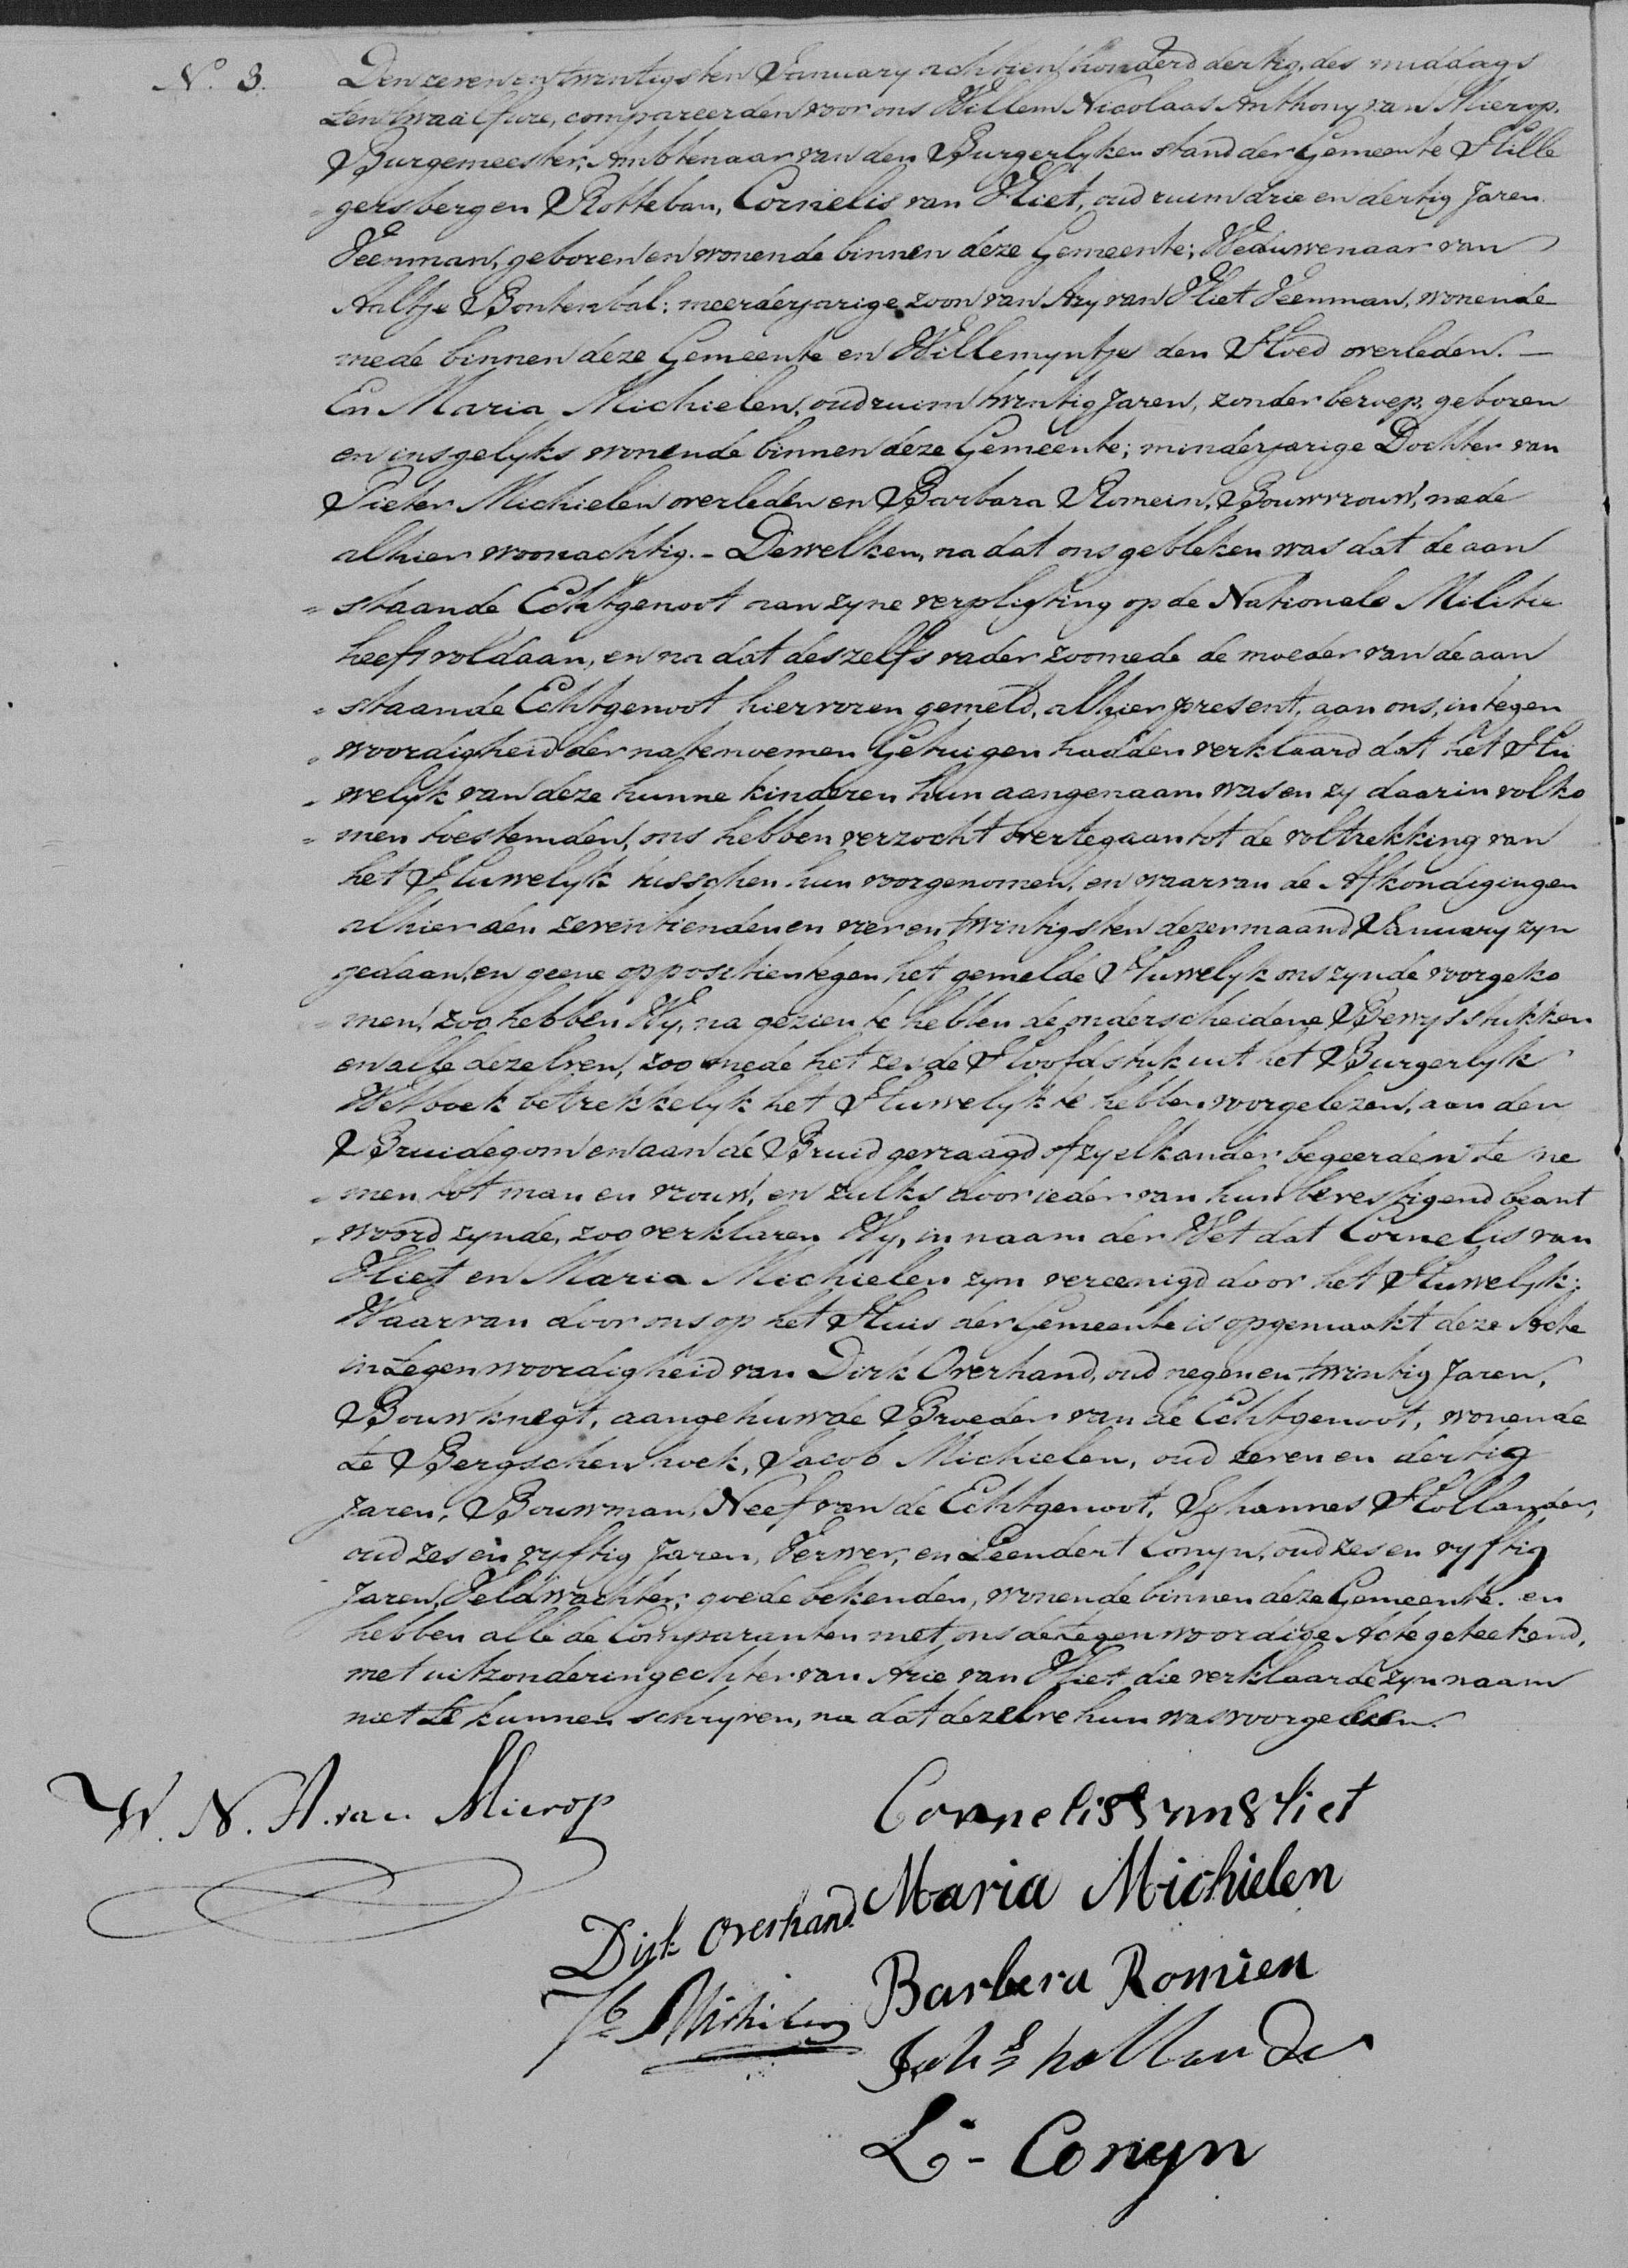 N.o 3.
Den zeven en twintigsten January achtien honderd dertig, des middags
ten twaalf ure, compareerden voor ons Willem Nicolaas Anthony van Mierop,
Burgemeester, Ambtenaar van den Burgerlyken stand der Gemeente Hille
gersberg en Rotteban, Cornelis van Vliet, oud ruim drie en dertig Jaren
Veenman, geboren en wonende binnen deze Gemeente; Weduwenaar van
Aaltje Bontenbal: meerderjarige zoon van Ary van Vliet Veenman, wonende
mede binnen deze Gemeente en Willemyntje den Hoed overleden. —
En Maria Michielen, oud ruim twintig Jaren, zonder beroep, geboren
en insgelyks wonende binnen deze Gemeente; minderjarige Dochter van
Pieter Michielen overleden en Barbara Romein, Bouwvrouw, mede
alhier woonachtig. - Dewelken, na dat ons gebleken was dat de aan
= staande Echtgenoot aan zyne verpligting op de Nationale Militie
heeft voldaan, en na dat deszelfs vader zoomede de moeder van de aan
= staande Echtgenoot hiervoren gemeld, alhier present, aan ons, in tegen
= woordigheid der natenoemen Getuigen hadden verklaard dat het Hu
= welyk van deze hunne kinderen hun aangenaam was en zy daarin volko
= men toestemden, ons hebben verzocht overtegaan tot de voltrekking van
het Huwelyk tusschen hun voorgenomen, en waarvan de Afkondigingen
alhier den zeventienden en vier en twintigsten dezer maand January zyn
gedaan, en geene oppositien tegen het gemelde Huwelyk ons zynde voorgeko
= men, zoo hebben Wy, na gezien te hebben de onderscheidene Bewysstukken
en alle dezelven, zoo mede het zesde Hoofdstuk uit het Burgerlyk
Wetboek betrekkelyk het Huwelyk te hebben voorgelezen, aan den
Bruidegom en aan de Bruid gevraagd of zy elkander begeerden te ne
= men tot man en vrouw, en zulks door ieder van hun bevestigend beant
= woord zynde, zoo verklaren Wy, in naam der Wet dat Cornelis van
Vliet en Maria Michielen zyn vereenigd door het Huwelyk;
Waarvan door ons op het Huis der Gemeente is opgemaakt deze Acte
in tegenwoordigheid van Dirk Overhand, oud negen en twintig Jaren,
Bouwknegt, aangehuwde Broeder van de Echtgenoot, wonende
te Bergschenhoek, Jacob Michielen, oud zeven en dertig
Jaren, Bouwman, Neef van de Echtgenoot, Johannes Hollander,
oud zes en vyftig Jaren, Verwer, en Leendert Conyn, oud zes en vyftig
Jaren, Veldwachter, goede bekenden, wonende binnen deze Gemeente. en
hebben alle de Comparanten met ons de tegenwoordige Acte geteekend,
met uitzondering echter van Arie van Vliet die verklaarde zyn naam
niet te kunnen schryven, na dat dezelve hun was voorgelezen.
W. N. A. van Mierop
Cornelis van vliet
Maria Michielen
Dirk Overhand
Barbera Romien
Jb Michielen
Johs hollander
L- Conyn